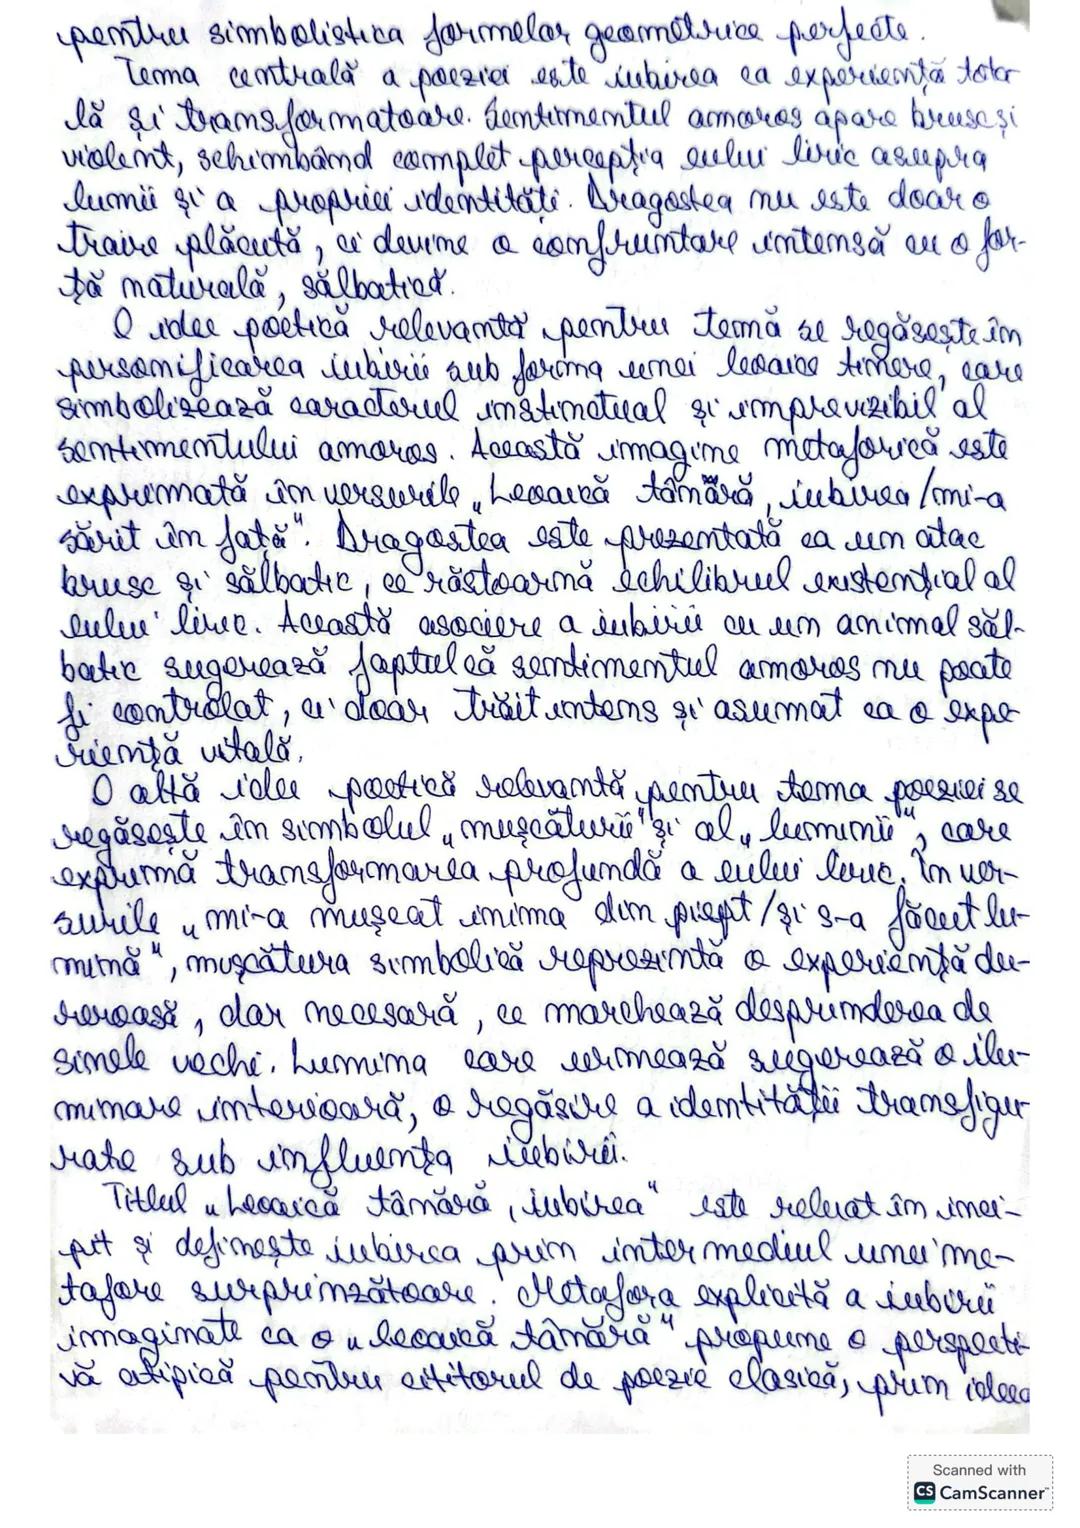 pentru simbolistica formelor geometrice perfecte.
Tema centrală a poeziei este iubirea ca experiență tota-
lă și transformatoare. Sentimentul amoros apare brusc și
violent, schimbând complet percepția eului liric asupra
lumii și a propriei identități. Dragostea nu este doar o
traire plăcută, ci devine o confruntare intensă cu o for-
ță naturală, sălbatică.
O idee poetică relevantă pentru temă se regăsește în
personificarea iubirii sub forma unei leoaice tinere, care
simbolizează caracterul instinctual și imprevizibil al
sentimentului amoros. Această imagine metaforică este
exprimată în versurile „Leoaică tânără, iubirea/mi-a
sărit în față". Dragostea este prezentată ca un atac
brusc și sălbatic, ce răstoarnă echilibrul existențial al
eului liric. Această asociere a iubirii cu un animal săl-
batic sugerează faptul că sentimentul amoros nu poate
fi controlat, ci doar trăit intens și asumat ca o expe-
riență vitală.
O altă idee poetică relevantă pentru tema poeziei se
regăsește în simbolul „mușcăturii" și al „luminii", care
exprimă transformarea profundă a eului liric. În ver-
surile „mi-a mușcat inima din piept/și s-a făcut lu-
mină", mușcătura simbolică reprezintă o experiență du-
reroasă, dar necesară, ce marchează desprinderea de
sinele vechi. Lumina care urmează sugerează o ilu-
minare interioară, o regăsire a identității transfigu-
rate sub influența iubirii.
Titlul „Leoaică tânără, iubirea" este reluat în inci-
pit și definește iubirea prin intermediul unei me-
tafore surprinzătoare. Metafora explicită a iubirii
imaginate ca o „leoaică tânără" propune o perspecti-
vă atipică pentru cititorul de poezie clasică, prim ideea
Scanned with
CS CamScanner